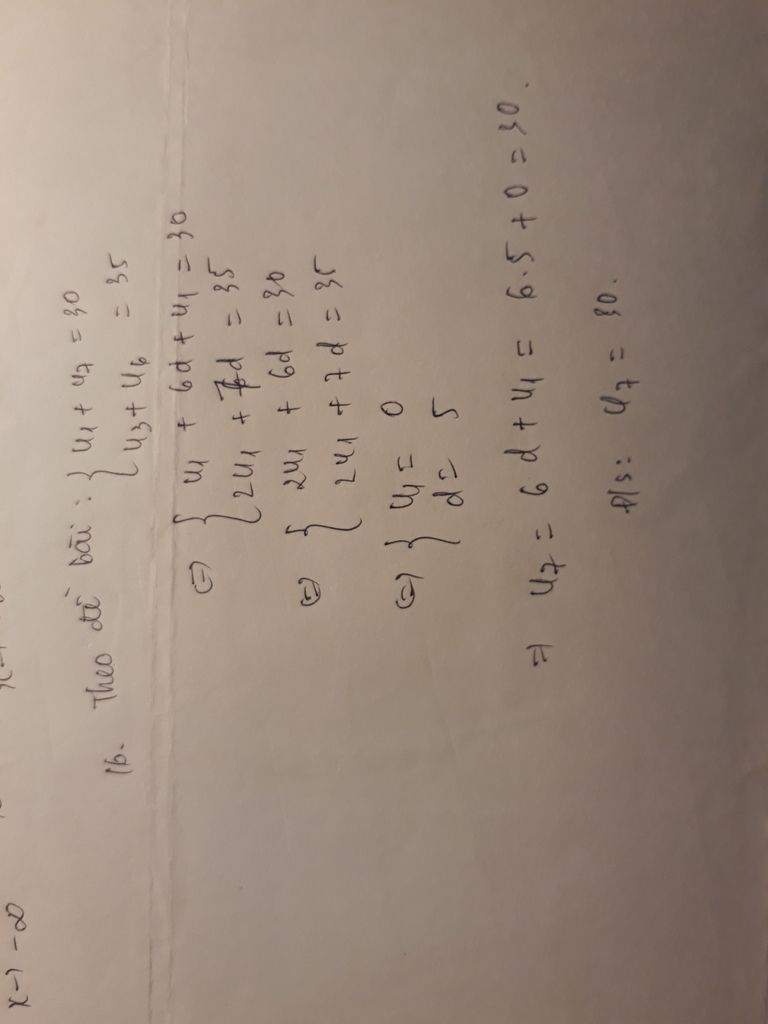 x → -∞
16. Theo đề bài : { u1 + u7 = 30
u3 + u6 = 35
(=) { u1 + 6d + u1 = 30
2u1 + 7d = 35
(=) { 2u1 + 6d = 30
2u1 + 7d = 35
(=) { u1 = 0
d = 5
=) u7 = 6d + u1 = 6.5 + 0 = 30.
Đ/s: u7 = 30.